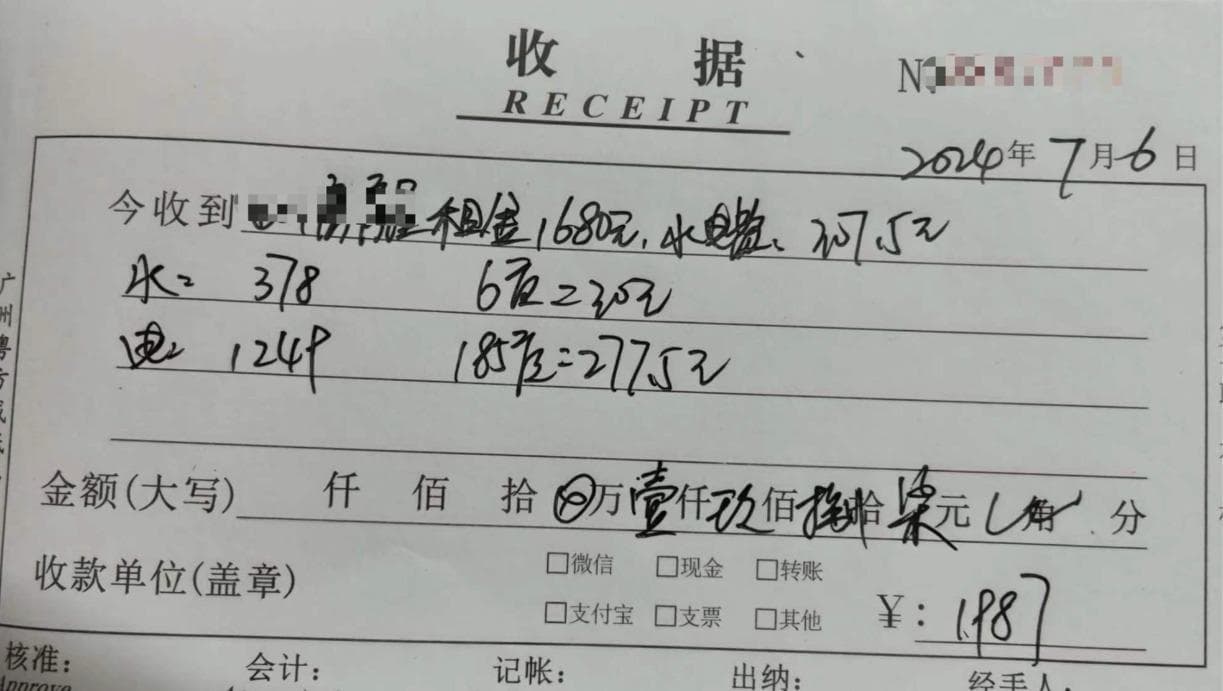 收 据
RECEIPT
N
2024年7月6日
今收到 租金1680元、水电费、307.5元
水= 378 6度=30元
电= 1249 185度=277.5元
金额(大写) 仟 佰 拾 ⊗万壹仟玖佰捌拾柒元 角 分
收款单位(盖章)
□微信 □现金 □转账
□支付宝 □支票 □其他
¥: 1987
核准: 会计: 记帐: 出纳: 经手人:
Approve
广州粤方